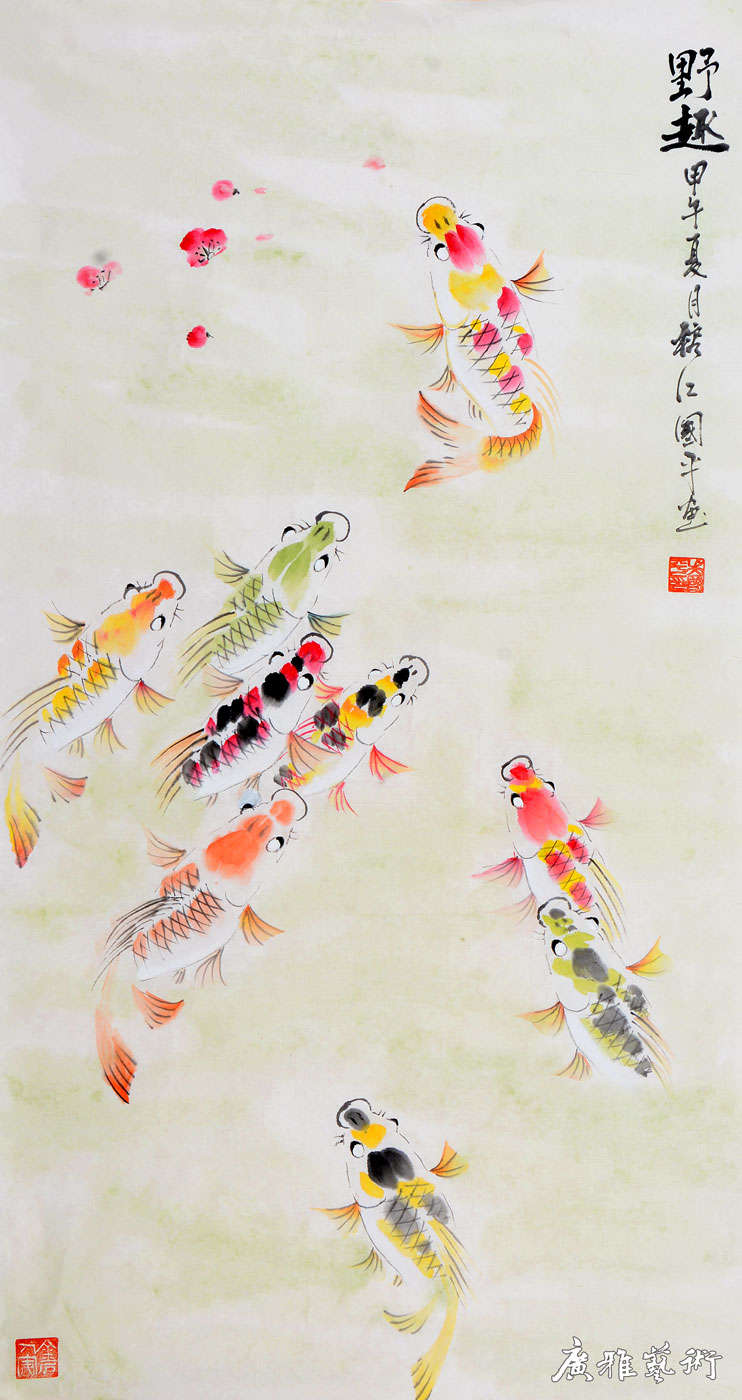 野趣
甲午夏月榕江國平画
廣雅藝術